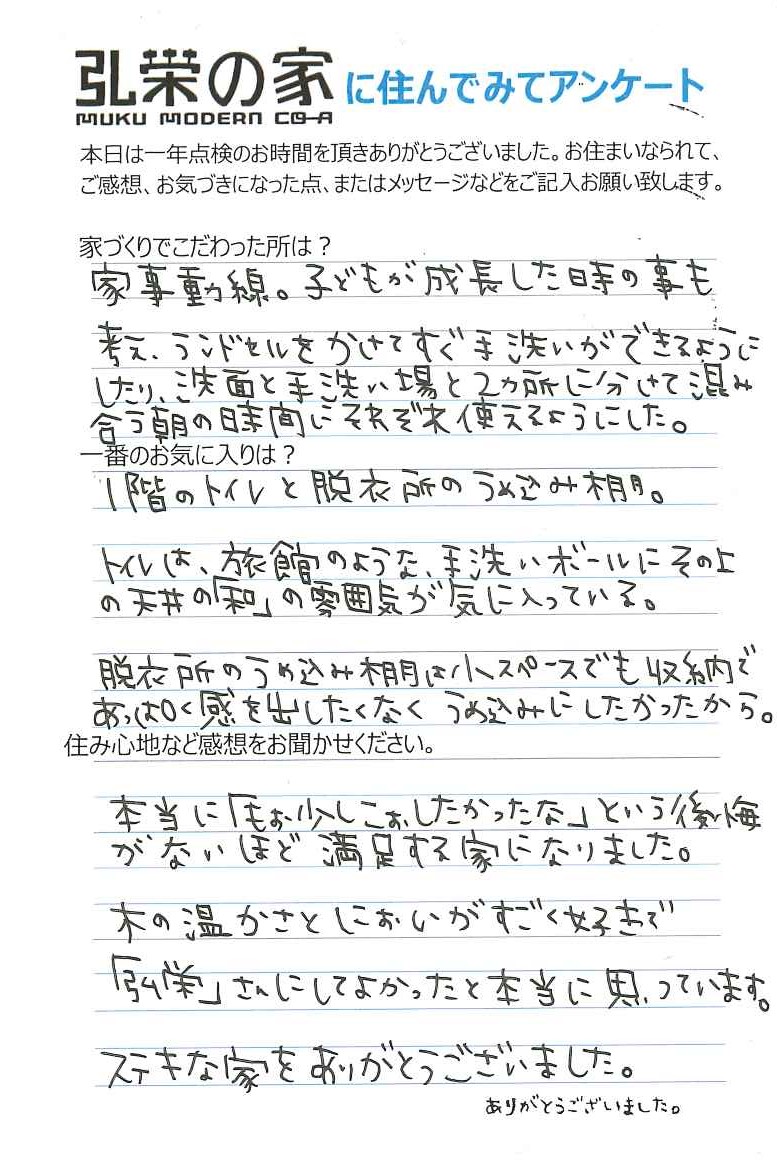 弘栄の家に住んでみてアンケート
MUKU MODERN CO-A
本日は一年点検のお時間を頂きありがとうございました。お住まいなられて、
ご感想、お気づきになった点、またはメッセージなどをご記入お願い致します。
家づくりでこだわった所は？
家事動線。子どもが成長した時の事も
考え、ランドセルをかけてすぐ手洗いができるように
したり、洗面と手洗い場と2カ所に分けて混み
合う朝の時間にそれぞれ使えるようにした。
一番のお気に入りは？
1階のトイレと脱衣所のうめ込み棚。
トイレは、旅館のような、手洗いボールにその上
の天井の「和」の雰囲気が気に入っている。
脱衣所のうめ込み棚は小スペースでも収納内で
あっぱく感を出したくなく うめ込みにしたかったから。
住み心地など感想をお聞かせください。
本当に「もぉ少しこぉしたかったな」という後悔
がないほど満足する家になりました。
木の温かさとにおいがすごく好きで
「弘栄」さんにしてよかったと本当に思っています。
ステキな家をありがとうございました。
ありがとうございました。